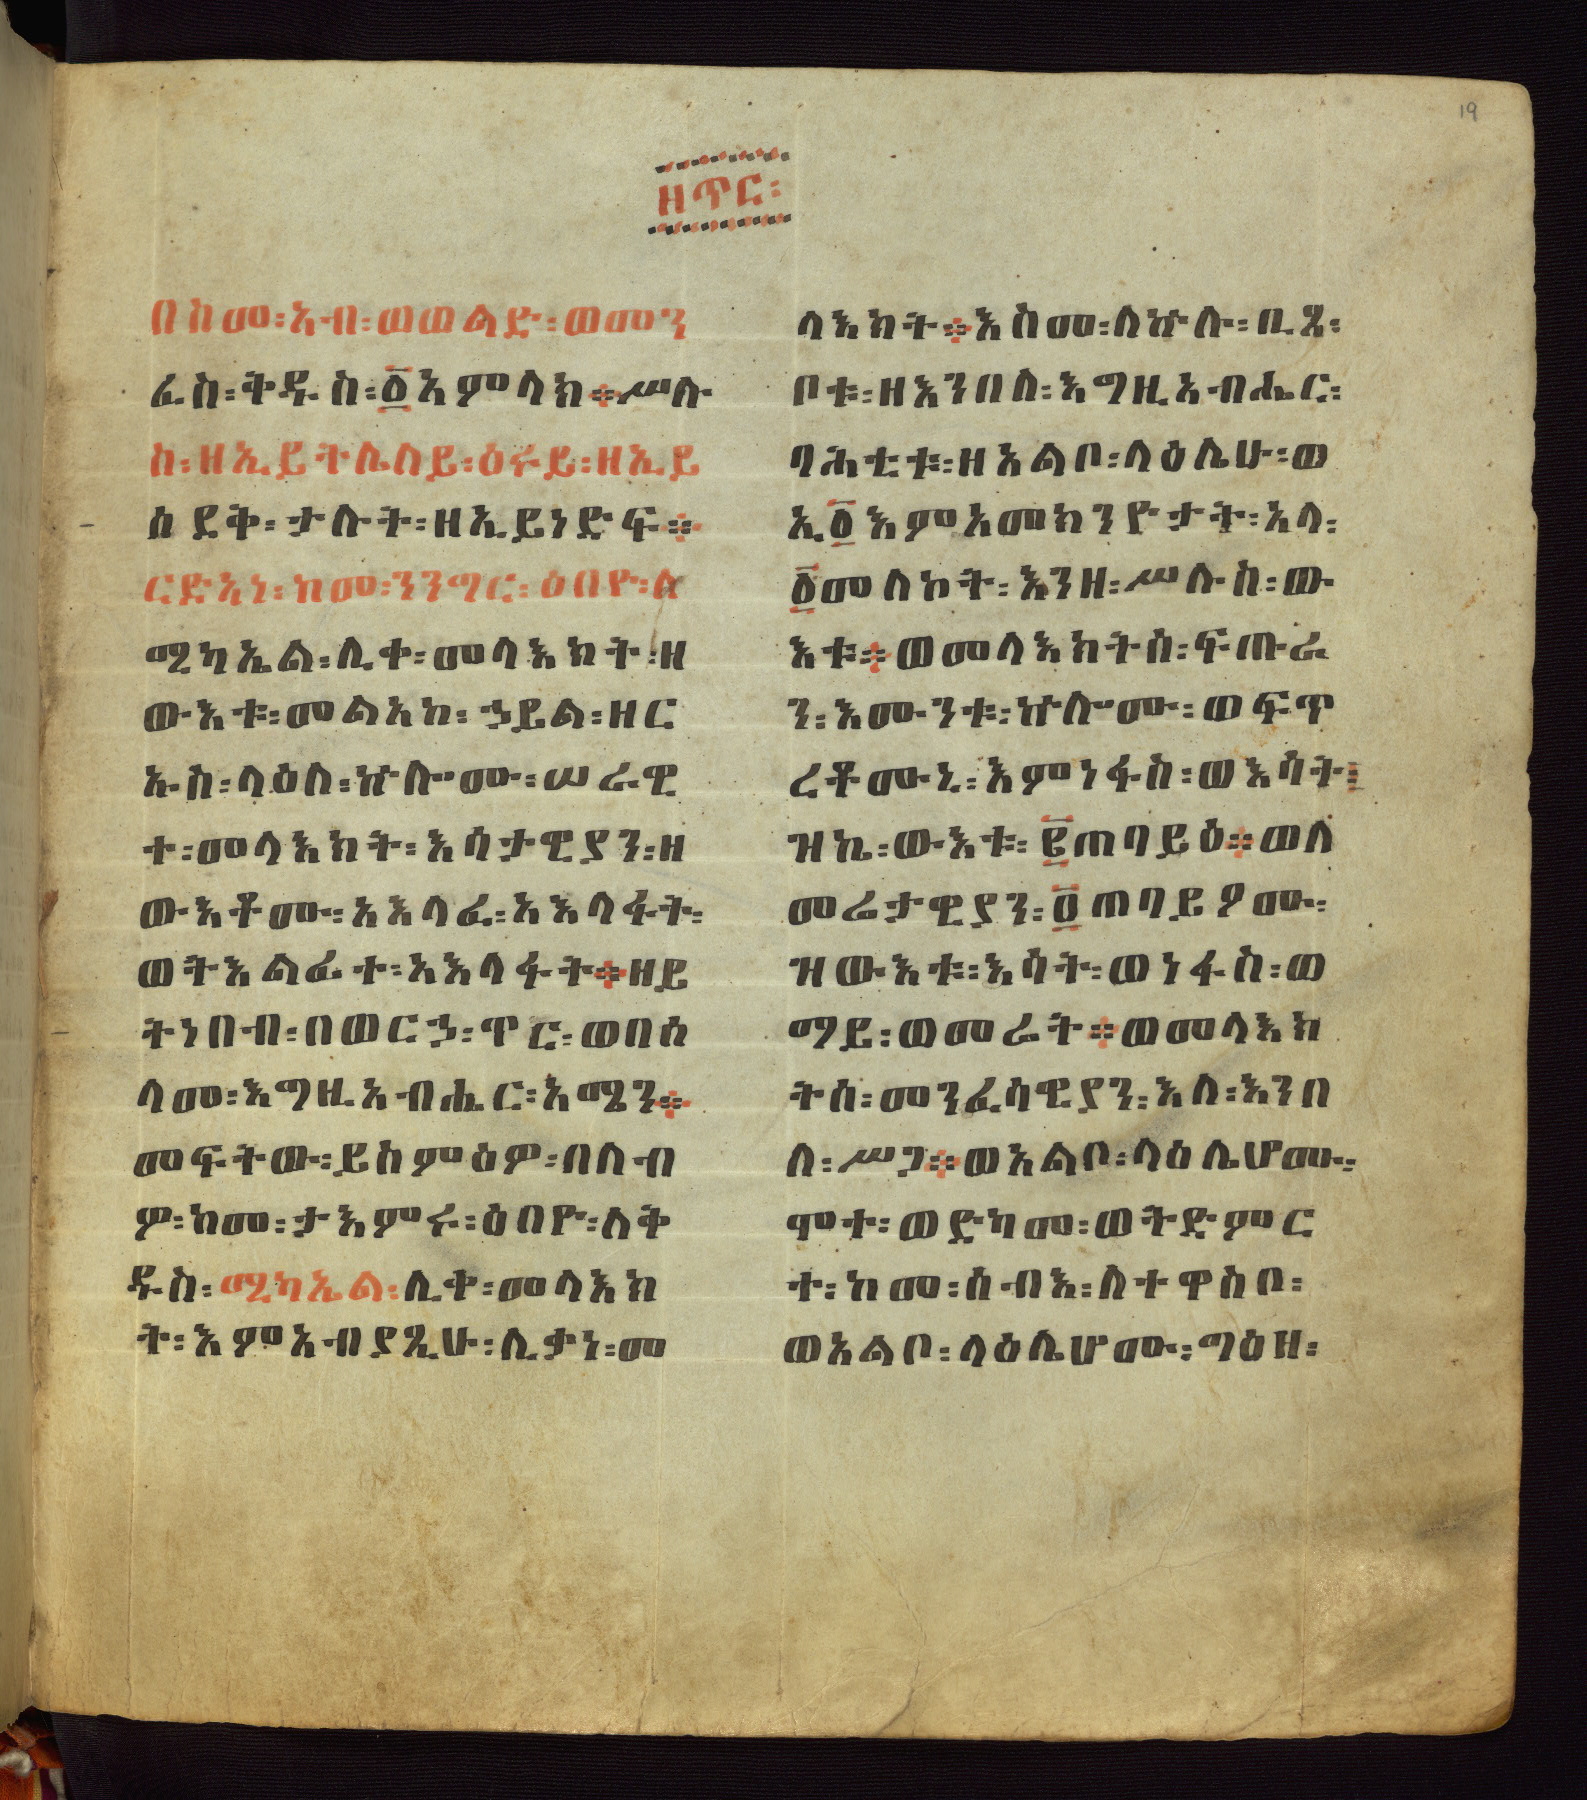 19
ዘጥር፡
በስመ፡አብ፡ወወልድ፡ወመን
ፈስ፡ቅዱስ፡፩አምላክ።ሥሉ
ስ፡ዘኢይትሌለይ፡ዕሩይ፡ዘኢይ
ሰደቅ፡ታሉት፡ዘኢይነድፍ።
ርድአነ፡ከመ፡ንንግር፡ዕበዮ፡ለ
ሚካኤል፡ሊቀ፡መላእክት፡ዘ
ውእቱ፡መልአከ፡ኃይል፡ዘር
ኡስ፡ላዕለ፡ኵሎሙ፡ሠራዊ
ተ፡መላእክት፡እሳታዊያን፡ዘ
ውእቶሙ፡አእላፈ፡አእላፋት፡
ወትእልፊተ፡አእላፋት።ዘይ
ትነበብ፡በወርኃ፡ጥር፡ወበሰ
ላመ፡እግዚአብሔር፡አሜን።
መፍትው፡ይስምዕዎ፡በለብ
ዎ፡ከመ፡ታእምሩ፡ዕበዮ፡ለቅ
ዱስ፡ሚካኤል፡ሊቀ፡መላእክ
ት፡እምአብያጺሁ፡ሊቃነ፡መ
ላእክት።እስመ፡ለኵሉ፡ቢጺ፡
ቦቱ፡ዘእንበለ፡እግዚአብሔር፡
ባሕቲቱ፡ዘአልቦ፡ላዕሌሁ፡ወ
ኢ፩እምአመክንዮታት፡አላ፡
፩መለኮት፡እንዘ፡ሥሉስ፡ው
እቱ።ወመላእክትሰ፡ፍጡራ
ን፡እሙንቱ፡ኵሎሙ፡ወፍጥ
ረቶሙኒ፡እምነፋስ፡ወእሳት፡
ዝኬ፡ውእቱ፡፪ጠባይዕ።ወለ
መሬታዊያን፡፬ጠባይዖሙ፡
ዝውእቱ፡እሳት፡ወነፋስ፡ወ
ማይ፡ወመሬት።ወመላእክ
ትሰ፡መንፈሳዊያን፡እለ፡እንበ
ለ፡ሥጋ።ወአልቦ፡ላዕሌሆሙ፡
ሞተ፡ወድካመ፡ወትድምር
ተ፡ከመ፡ሰብእ፡ለተዋስቦ፡
ወአልቦ፡ላዕሌሆሙ፡ግዕዘ፡